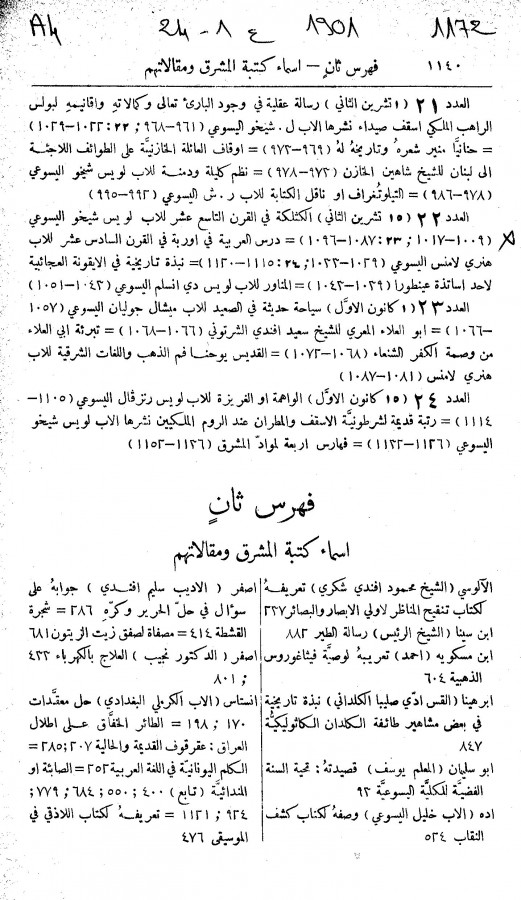 A4 24 - 8 ع 1901 1172
١١٤٠ فهرس ثانٍ – اسماء كتبة المشرق ومقالاتهم
العدد ٢١ (١ تشرين الثاني) رسالة عقلية في وجود البارئ تعالى وكمالاته واقانيمه لبولس
الراهب الملكي اسقف صيداء نشرها الاب ل. شيخو اليسوعي (٩٦١–٩٦٨; ٢٢: ١٠٢٢–١٠٢٩)
= حنانيَّا منير شعرهُ وتاريخهُ لهُ (٩٦٩–٩٧٢) = اوقاف العائلة الخازنيَّة على الطوائف اللاجئة
الى لبنان للشيخ شاهين الخازن (٩٧٢–٩٧٨) = نظم كليلة ودمنة للاب لويس شيخو اليسوعي
(٩٧٨–٩٨٦) = التيلوتُغراف او ناقل الكتابة للاب ر. ش اليسوعي (٩٩٢–٩٩٥)
العدد ٢٢ (١٥ تشرين الثاني) الكثلكة في القرن التاسع عشر للاب لويس شيخو اليسوعي
(١٠٠٩–١٠١٧; ٢٣: ١٠٨٧–١٠٩٦) = درس العربية في اوربة في القرن السادس عشر للاب
هنري لامنس اليسوعي (١٠٢٩–١٠٢٢; ٢٤: ١١١٥–١١٢٠) = نبذة تاريخية في الايقونة العجائبية
لاحد اساتذة عينطورا (١٠٣٩–١٠٤٢) = المناور للاب لويس دي انسلم اليسوعي (١٠٤٢–١٠٥١)
العدد ٢٣ (١ كانون الاوَّل) سياحة حديثة في الصعيد للاب ميشال جوليان اليسوعي (١٠٥٧
–١٠٦٦) = ابو العلاء المعري للشيخ سعيد افندي الشرتوني (١٠٦٦–١٠٦٨) = تبرئة ابي العلاء
من وصمة الكفر الشنعاء (١٠٦٨–١٠٧٢) = القديس يوحنا فم الذهب واللغات الشرقية للاب
هنري لامنس (١٠٨١–١٠٨٧)
العدد ٢٤ (١٥ كانون الاوَّل) الواهمة او الغريزة للاب لويس رنزڤال اليسوعي (١١٠٥–
١١١٤) = رتبة قديمة لشرطونيَّة الاسقف والمطران عند الروم الملكيين نشرها الاب لويس شيخو
اليسوعي (١١٢٦–١١٣٢) = فهارس اربعة لموادّ المشرق (١١٣٦–١١٥٢)
فهرس ثانٍ
اسماء كتبة المشرق ومقالاتهم
الآلوسي (الشيخ محمود افندي شكري) تعريفهُ
لكتاب تنقيح المناظر لاولي الابصار والبصائر ٢٣٧
ابن سينا (الشيخ الرئيس) رسالة الطير ٨٨٢
ابن مسكويه (احمد) تعريبهُ لوصيَّة فيثاغوروس
الذهبية ٦٠٤
ابرهينا (القس ادّي صليبا الكلداني) نبذة تاريخية
في بعض مشاهير طائفة الكلدان الكاثوليكيَّة
٨٤٧
ابو سليمان (المعلم يوسف) قصيدتهُ: تحية السنة
الفضيَّة للكليَّة اليسوعيَّة ٩٢
اده (الاب خليل اليسوعي) وصفهُ لكتاب كشف
النقاب ٥٢٤
اصفر (الاديب سليم افندي) جوابهُ على
سؤال في حلّ الحرير وكرّهِ ٢٨٦ = شجرة
القشطة ٤١٤ = مصفاة لصفق زيت الزيتون ٦٨١
اصفر (الدكتور نجيب) العلاج بالكهرباء ٤٣٢
; ٨٠١
انستاس (الاب الكرملي البغدادي) حل معقَّدات
١٧٠ ; ١٩٨ = الطائر الخفَّاق على اطلال
العراق: عقرقوف القديمة والحالية ٢٠٧; ٢٨٥ =
الكلم اليونانيَّة في اللغة العربية ٢٥٢ = الصابئة او
المندائيَّة (تابع) ٤٠٠ ; ٥٥٠ ; ٦٨٤ ; ٧٧٩;
٩٢٤ ; ١١٢١ = تعريفهُ لكتاب اللاذقي في
الموسيقى ٤٧٦